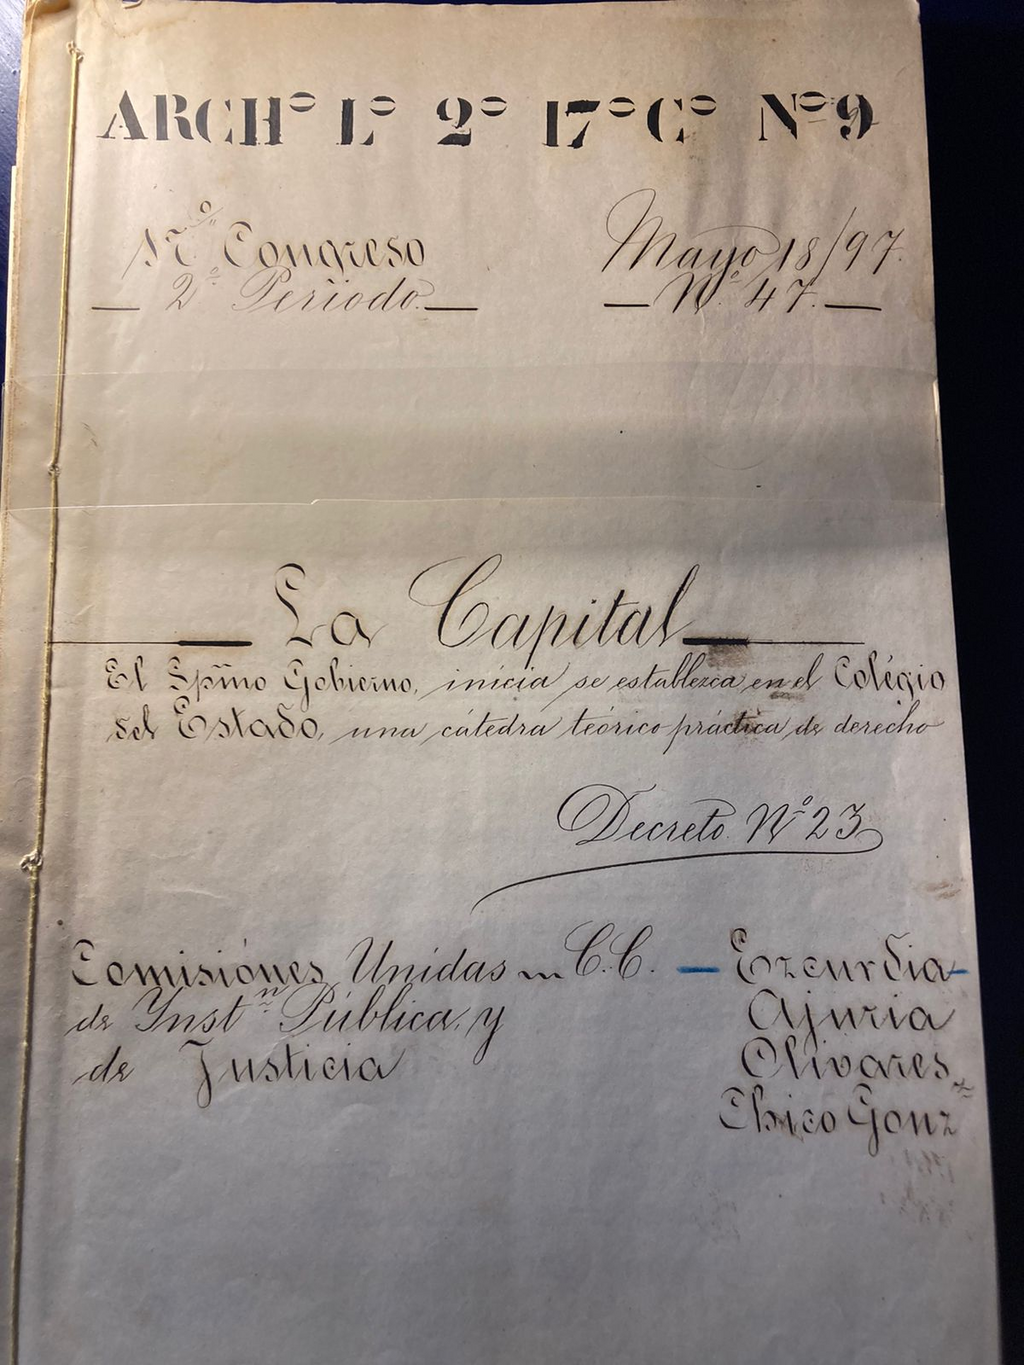 ARCHº Lº 2º 17º Cº Nº 9
17º Congreso
2º Periodo
Mayo 18/97.
Nº 47.
La Capital
El Spmo Gobierno, inicia se establezca en el Colégio
del Estado, una cátedra teórico práctica de derecho
Decreto Nº 23
Comisiónes Unidas
de Ynstn Pública, y
de Justicia
C.C. — Ezcurdia
Ajuria
Olivares
Chico Gonz